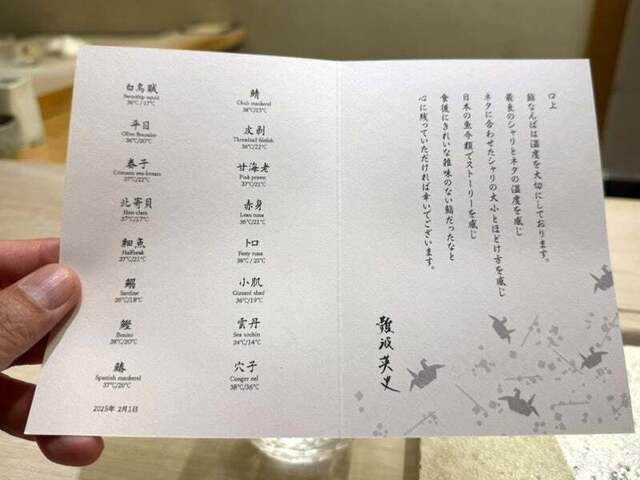 白烏賊
Swordtip squid
36℃/17℃
平目
Olive flounder
36℃/20℃
春子
Crimson sea-bream
37℃/22℃
北寄貝
Hen clam
37℃/17℃
細魚
Halfbeak
37℃/21℃
鰯
Sardine
36℃/18℃
鰹
Bonito
38℃/20℃
鰆
Spanish mackerel
37℃/20℃
2025年 2月1日
鯖
Chub mackerel
38℃/23℃
皮剥
Threadsail filefish
36℃/22℃
甘海老
Pink prawn
37℃/21℃
赤身
Lean tuna
36℃/21℃
トロ
Fatty tuna
38℃/25℃
小肌
Gizzard shad
36℃/19℃
雲丹
Sea urchin
34℃/14℃
穴子
Conger eel
38℃/36℃
口上
鮨なんばは温度を大切にしております。
最良のシャリとネタの温度を感じ
ネタに合わせたシャリの大小とほどけ方を感じ
日本の魚介類でストーリーを感じ
食後にきれいな雑味のない鮨だったなと
心に残っていただければ幸いでございます。
難波英史